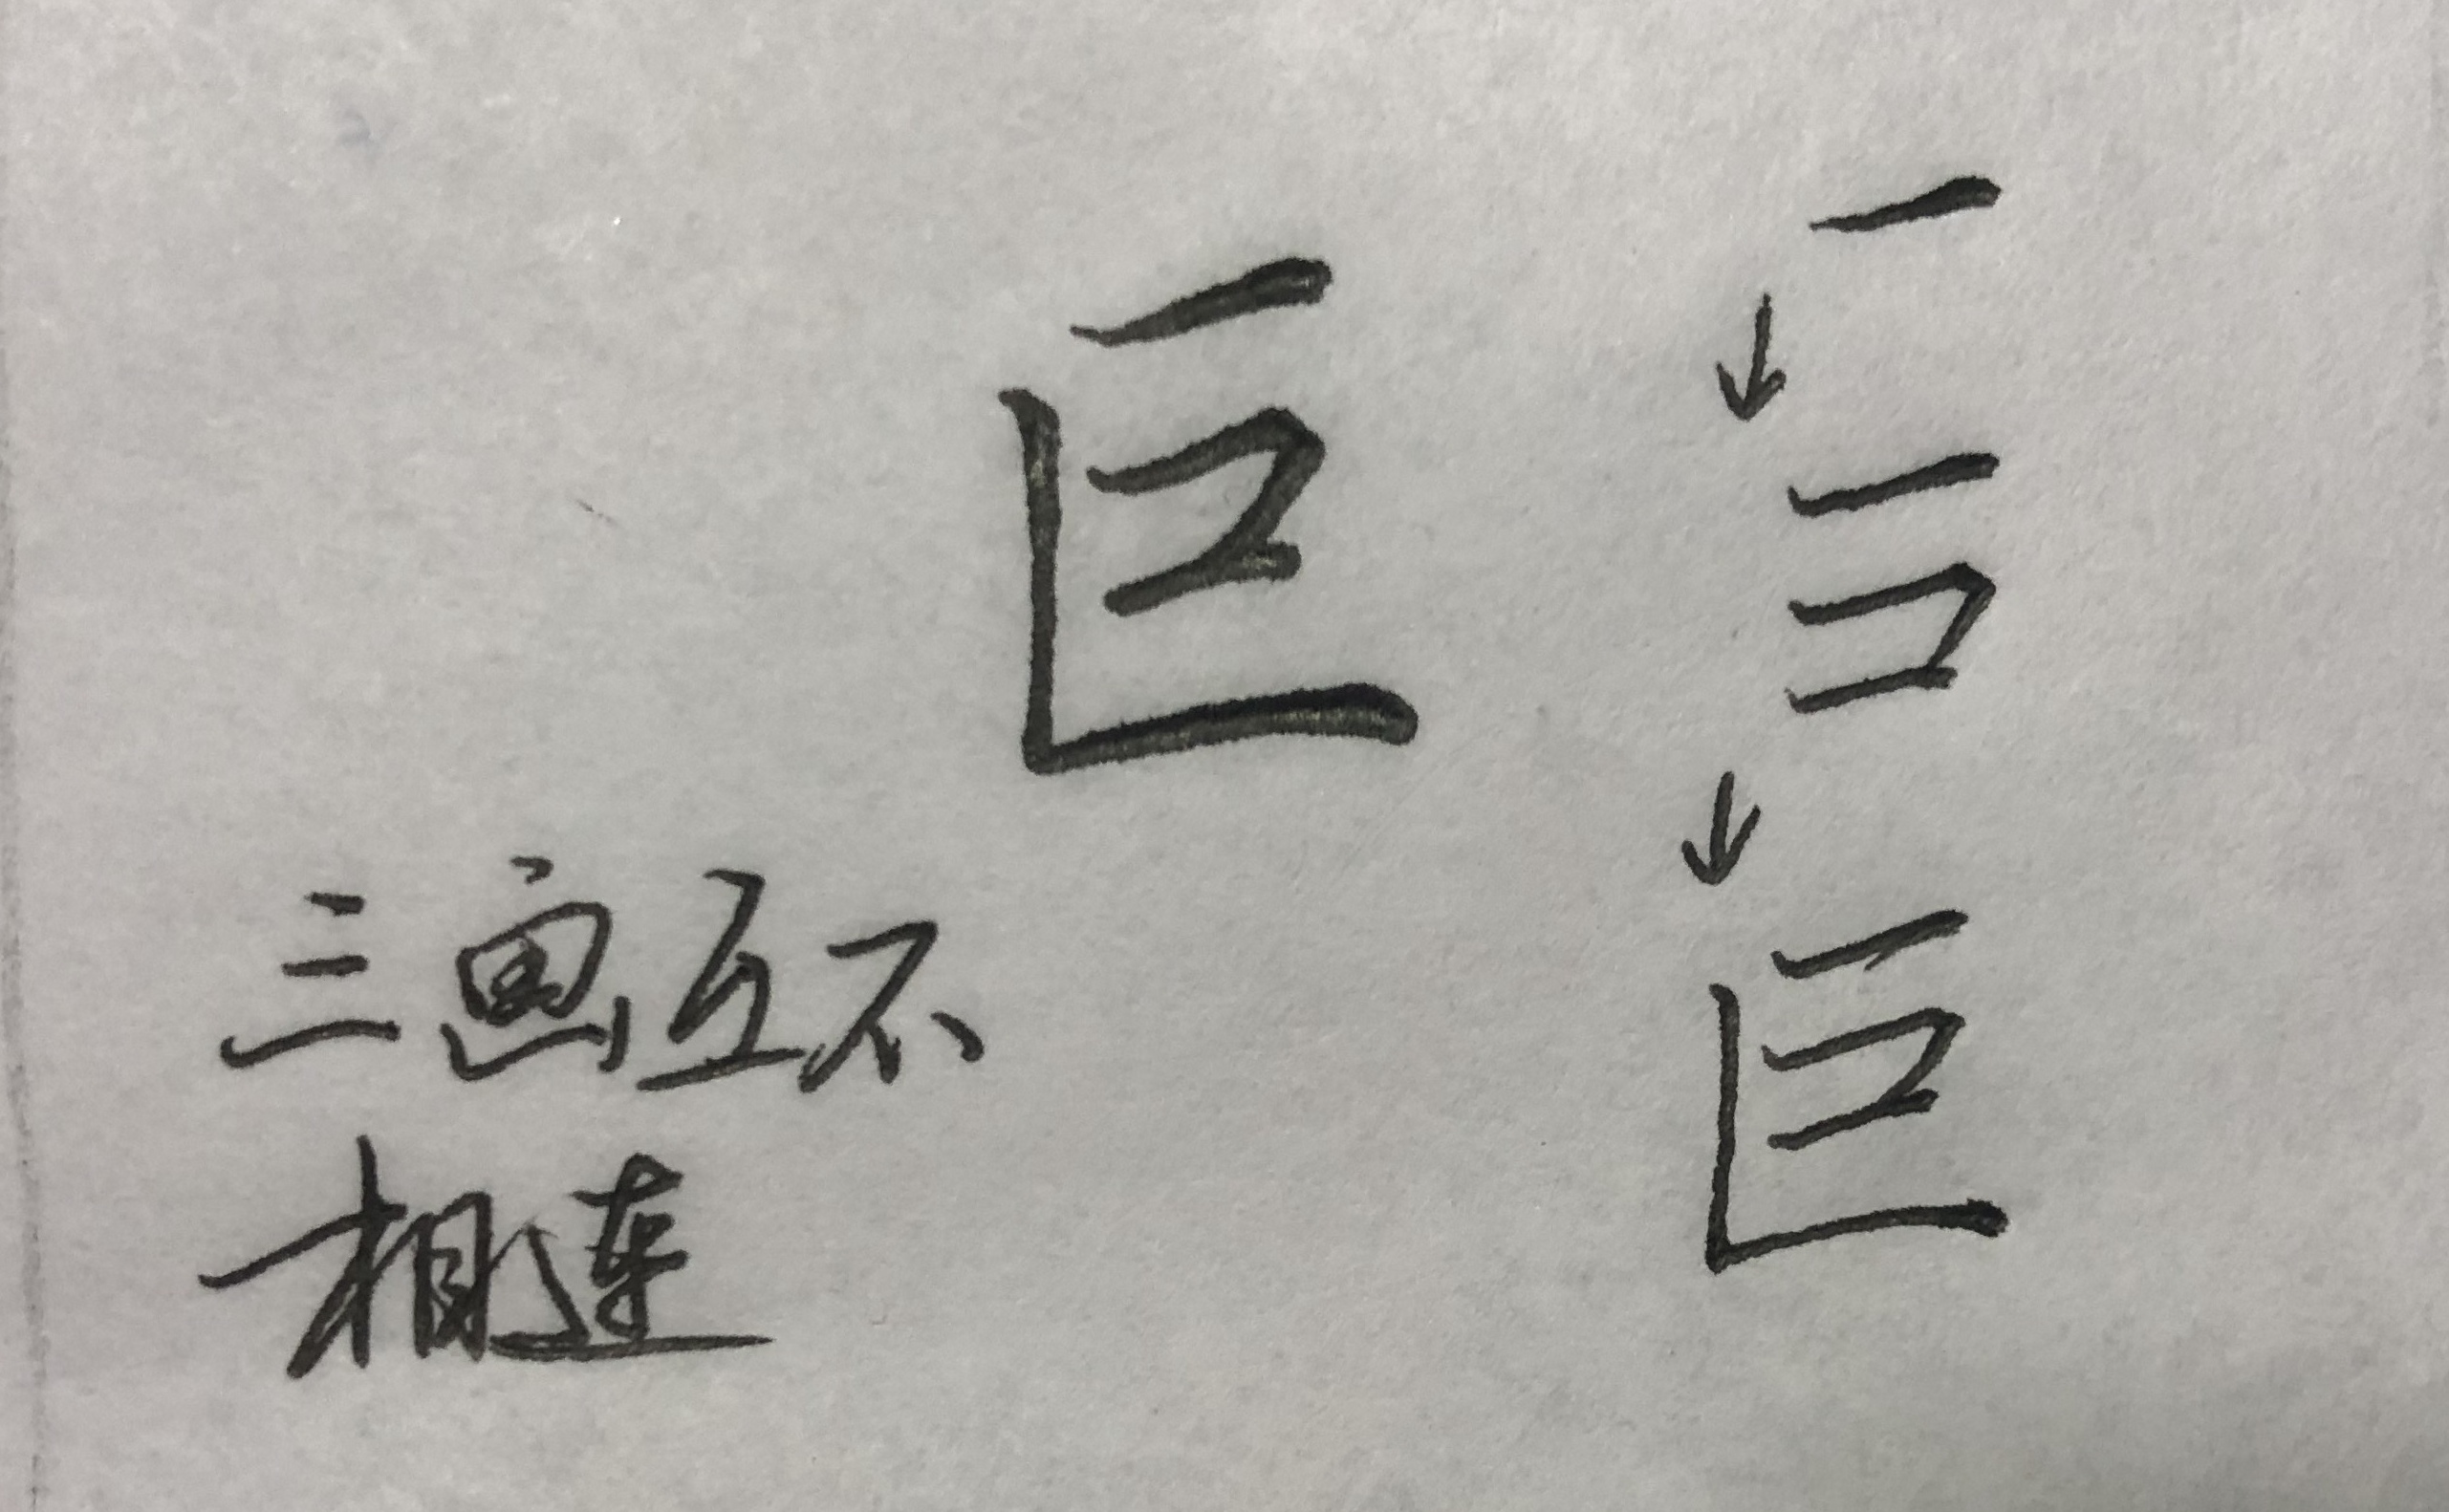 巨
三画互不
相连
一
↓
二コ
↓
巨